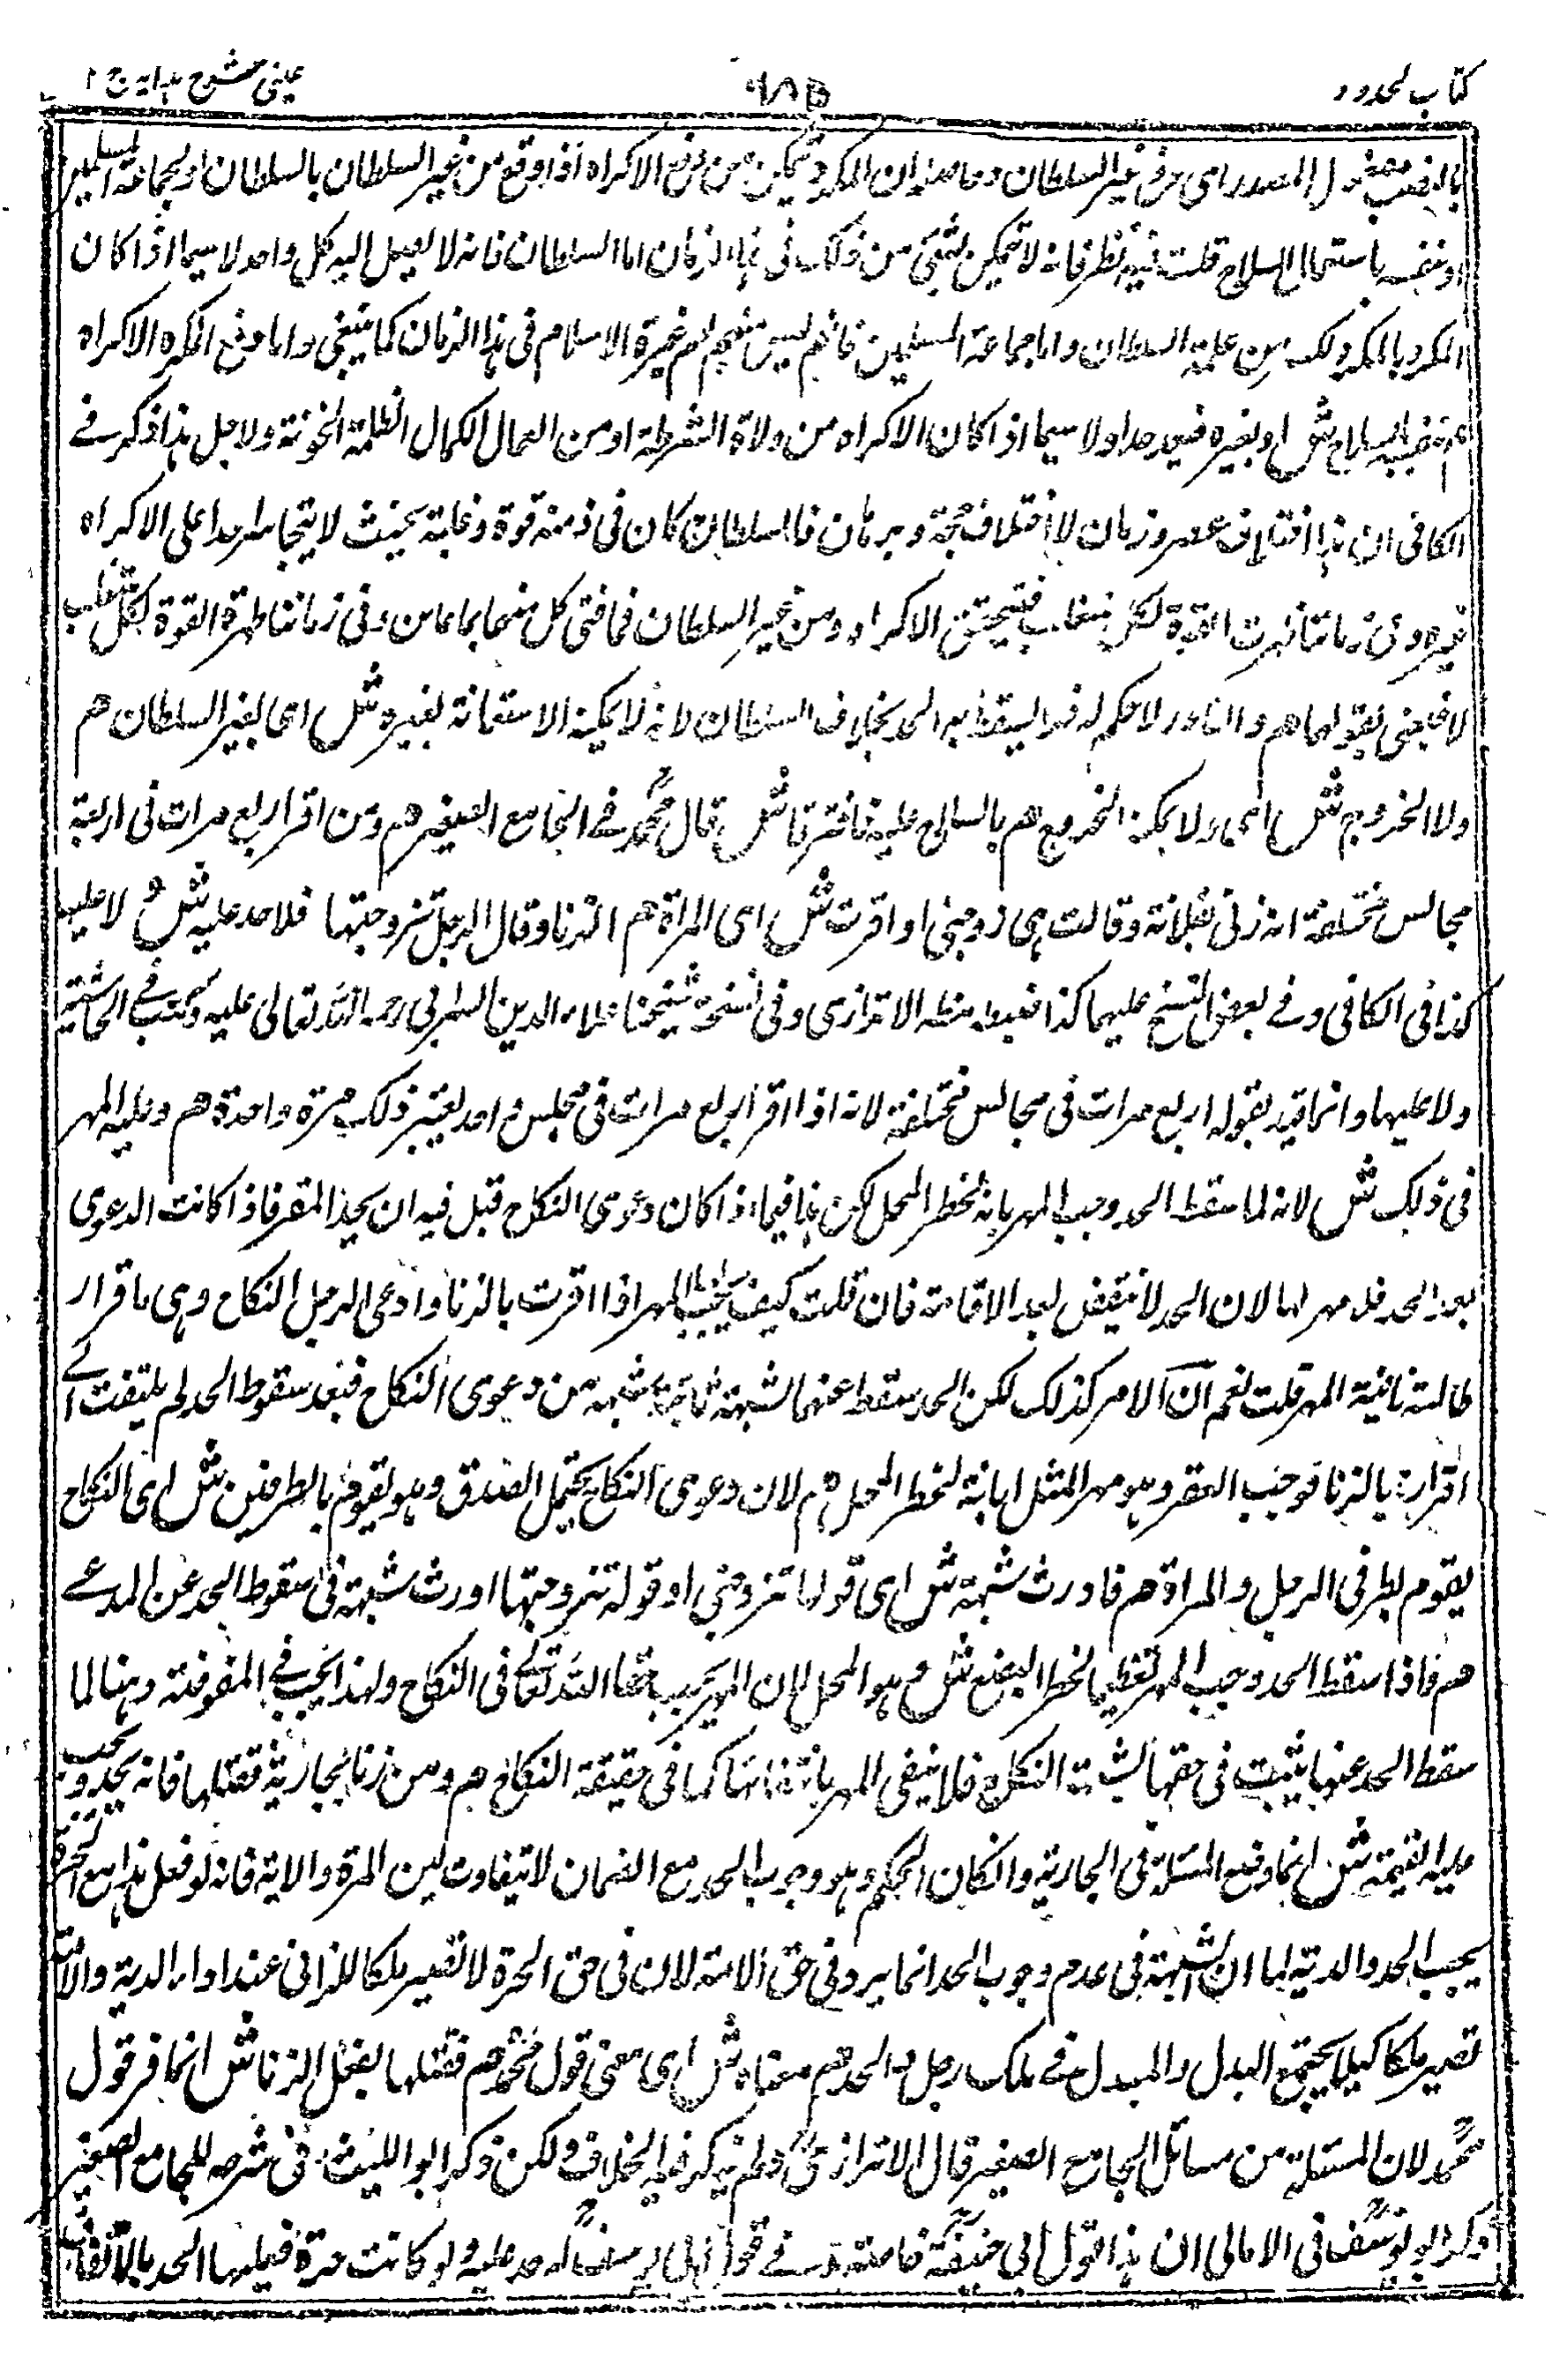 كتاب الحدود
عينى شرح هدايه ج ٢
بالنصب مفعول المصدر اى دفع غير السلطان وحاصله ان المكره يتمكن من دفع الاكراه اذا وقع من غير السلطان بالسلطان او بجماعة المسلمين
او بنفسه باستعمال السلاح قلت فيه نظر فانه لا يتمكن بشئ من ذلك فى هذا الزمان اما السلطان فانه لا يصل اليه كل واحد لا سيما اذا كان
المكره بالمكره لك من السلطان واما جماعة المسلمين فانهم ليس منهم لهم غيرة الاسلام فى هذا الزمان كما ينبغى واما دفع المكره الاكراه
بنفسه بالسلاح ش او بغيره فبعيد جدا ولا سيما اذا كان الاكراه من ولاة الشرطة او من العمال الكمال الظلمة الخونة ولاجل هذا ذكر فے
الكافى ان هذا اختلاف عصر وزمان لا اختلاف حجة وبرهان فالسلطان كان فى زمنه قوة وغلبة بحيث لا يتجاسر احد على الاكراه
غيره وفى زماننا ظهرت القوة لكل متغلب فيتحقق الاكراه من غير السلطان فافتى كل منهما بما عاين وفى زماننا ظهرة القوة لكل متغلب
لا فيفتى بقولهما هم والنادر لا حكم له فلا يسقط به الحد بخلاف السلطان لانه لا يمكنه الاستعانة بغيره ش اى بغير السلطان هم
ولا الخروج ش اى ولا يمكنه الخروج هم بالسلاح عليه فافترقا ش قال محمد فے الجامع الصغير هم ومن اقر اربع مرات فى اربعة
مجالس مختلفة انه زنى بفلانة وقالت هى تزوجنى او اقرت ش اى المراة هم الزنا وقال الرجل تزوجتها فلا حد عليه ش ولا عليها
كذا فى الكافى وفے بعض النسخ عليهما كذا ضبط بخطه الاترازى وفى نسخة شيخنا علاء الدين السيرافى رحمه الله تعالى عليه وكتب فے الحاشية
ولا عليها وانما قيد بقوله اربع مرات فى مجالس مختلفة لانه اذا اقر اربع مرات فى مجلس واحد يعتبر ذلك مرة واحدة هم وعليه المهر
فى ذلك ش لانه لما سقط الحد وجب المهر ابانة لخطر المحل لكن هذا فيما اذا كان دعوى النكاح قبل فيه ان يحد المقر فاذا كانت الدعوى
بعد الحد فلا مهر لها لان الحد لا ينقض بعد الاقامة فان قلت كيف يجب المهر اذا اقرت بالزنا وادعى الرجل النكاح وهى باقرار
طالبة نافية المهر قلت نعم ان الامر كذلك لكن الحد سقط عنهما لشبهة ثابتة شبهة من دعوى النكاح فبعد سقوط الحد لم يلتفت الى
اقرارها بالزنا فوجب العقر وهو مهر المثل ابانة لخطر المحل هم لان دعوى النكاح يحتمل الصدق وهو يقوم بالطرفين ش اى النكاح
يقوم بطرفى الرجل والمراة هم فاورث شبهة ش اى قولها تزوجنى او قوله تزوجتها اورث شبهة فى سقوط الحد عن المدعے
هم فاذا سقط الحد وجب المهر تعظيما لخطر البضع ش وهو المحل لان المهر يجب حقا لله تعالى فى النكاح ولهذا يجب فے المفوضة وهنا لما
سقط الحد عنها يثبت فى حقها شبهة النكاح فلا ينفى المهر بانتفائها كما فى حقيقة النكاح هم ومن زنا بجارية فقتلها فانه يحد ويجب
عليه القيمة ش انما وضع المسئلة فى الجارية وان كان الحكم وهو وجوب الحد مع الضمان لا يتفاوت بين الحرة والامة فانه لو فعل هذا مع الحرة
يجب الحد والدية لما ان الشبهة فى عدم وجوب الحد انما يرد فى حق الامة لان فى حق الحرة لا تصير ملكا للزانى عند اداء الدية والامة
تصير ملكا كيلا يجتمع البدل والمبدل فے ملك رجل واحد هم معناه ش اى معنى قول محمد هم فقتلها بفعل الزنا ش انما فسر قول
محمد لان المسئلة من مسائل الجامع الصغير قال الاترازى ولم يذكر فيه الخلاف ولكن ذكر ابو الليث فى شرحه للجامع الصغير
ذكر ابو يوسف فى الامالى ان هذا قول ابى حنيفة خاصة وفے قول ابى يوسف لا حد عليه ولو كانت حرة فعليها الحد بالاتفاق